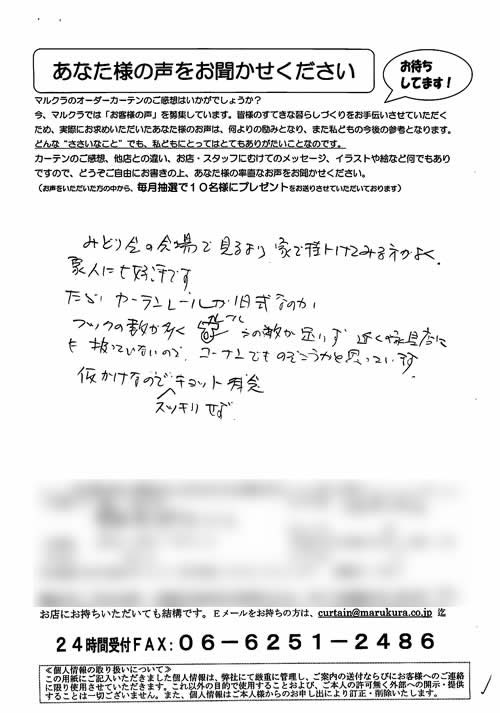 あなた様の声をお聞かせください
お待ち
してます!
マルクラのオーダーカーテンのご感想はいかがでしょうか?
今、マルクラでは「お客様の声」を募集しています。皆様のすてきな暮らしづくりをお手伝いさせていただく
ため、実際にお求めいただいたあなた様のお声は、何よりの励みとなり、また私どもの今後の参考となります。
どんな“ささいなこと”でも、私どもにとってはとてもありがたいことなのです。
カーテンのご感想、他店との違い、お店・スタッフにむけてのメッセージ、イラストや絵など何でもあり
ですので、どうぞご自由にお書きの上、あなた様の率直なお声をお聞かせください。
(お声をいただいた方の中から、毎月抽選で10名様にプレゼントをお送りさせていただいております)
みどり会の会場で見るより家で掛けてみる方がよく、
家人にも好評です
ただ カーテンレールが旧式なのか
フックの数が多く レール の数が足りず 近くの家具店に
も扱っていないので、コーナンでものぞこうかと思っています
仮かけなのでチョット
スッキリせず
お店にお持ちいただいても結構です。Eメールをお持ちの方は、curtain@marukura.co.jp 迄
24時間受付FAX:06-6251-2486
≪個人情報の取り扱いについて≫
この用紙にご記入いただきました個人情報は、弊社にて厳重に管理し、ご案内の送付ならびにお客様へのご連絡
に限り使用させていただきます。これ以外の目的で使用することおよび、ご本人の許可無く外部への開示・提供
することは一切ございません。また、個人情報はご本人様からのお申し出により訂正・削除いたします。